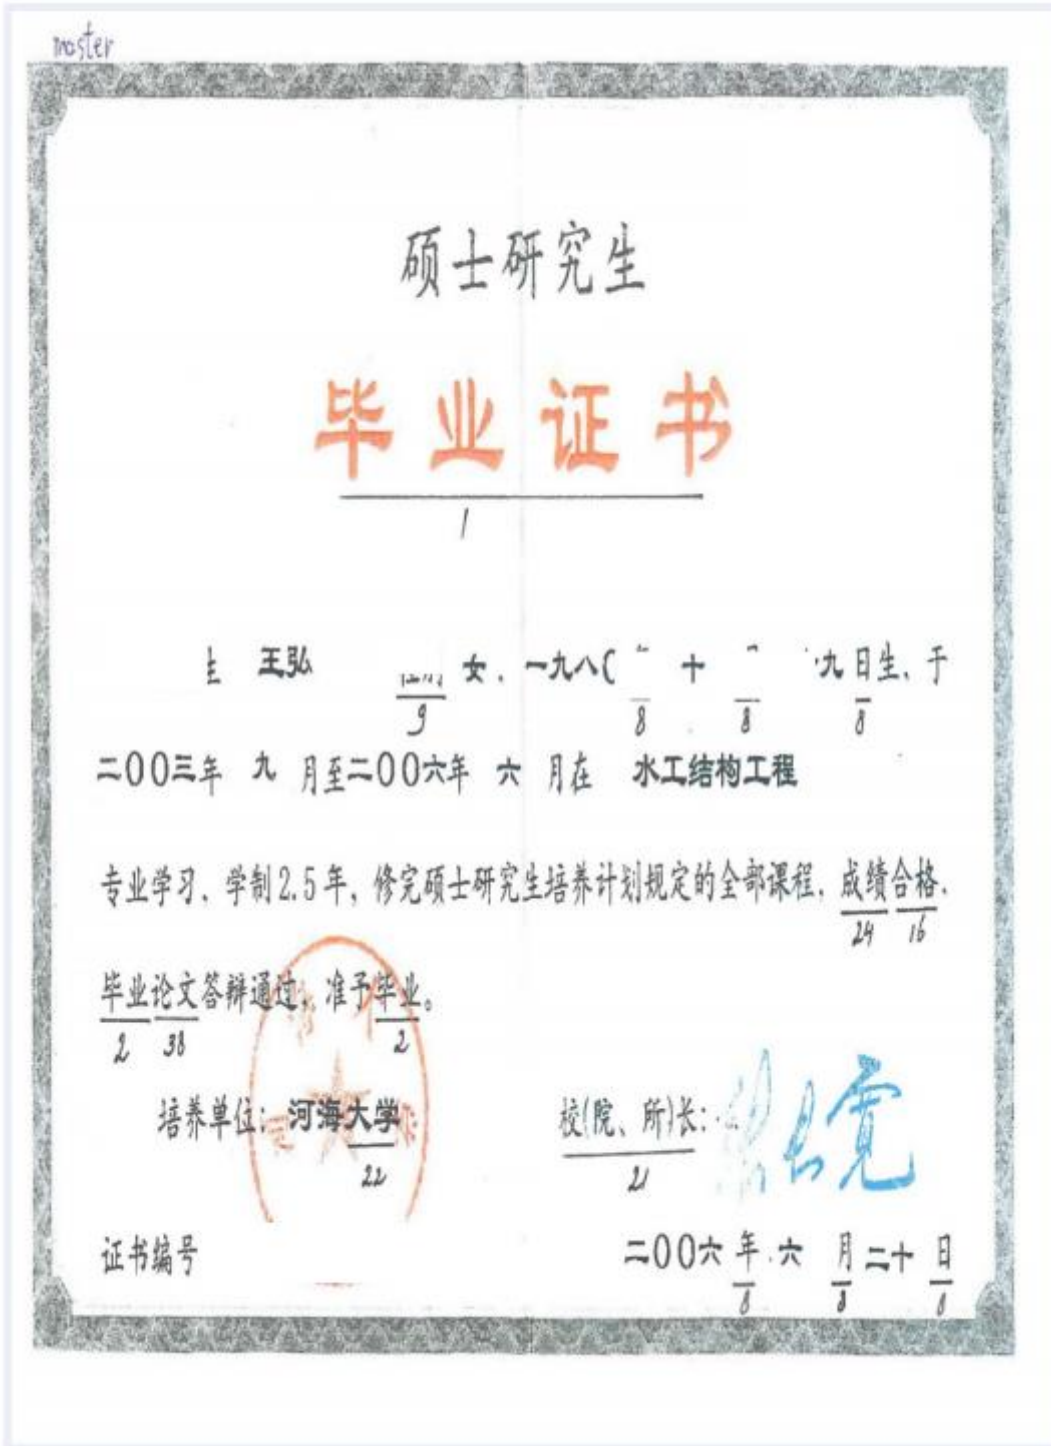 master
硕士研究生
毕业证书
1
王弘 女，一九八 十 九日生、于
9 8 8 8
二〇〇三年 九 月至二〇〇六年 六 月在 水工结构工程
专业学习、学制2.5年，修完硕士研究生培养计划规定的全部课程，成绩合格，
24 16
毕业论文答辩通过，准予毕业。
2 38 2
培养单位：河海大学 校(院、所)长：
22 21
证书编号 二〇〇六 年 六 月 二十 日
8 8 8